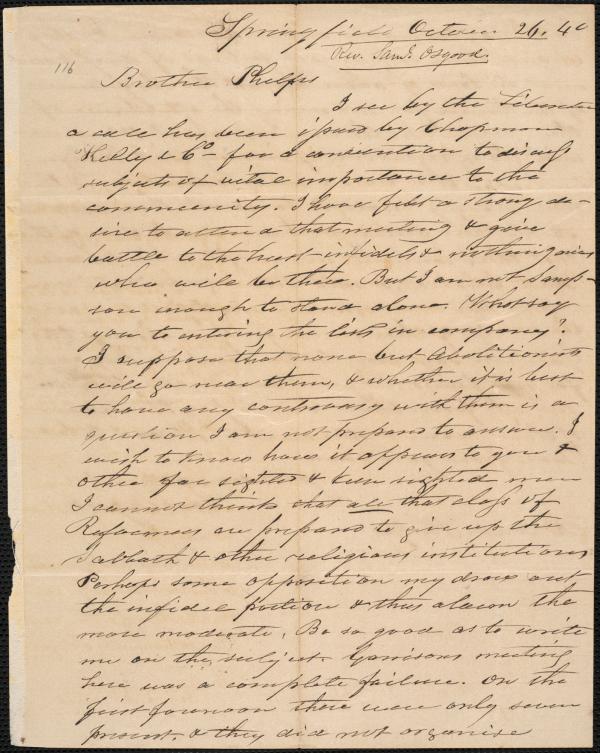 Springfield October 26. 40
Rev. Saml. Osgood.
116
Brother Phelps
I see by the Liberator
a call has been issued by Chapman
Kelly & Co for a convention to discuss
subjects of vital importance to the
community. I have felt a strong de-
sire to attend that meeting & give
battle to the host infidels & nothingarians
who will be there. But I am not Samp-
son enough to stand alone. What say
you to entering the lists in company?
I suppose that none but Abolitionists
will go near them, & whether it is best
to have any controversy with them is a
question I am not prepared to answer. I
wish to know how it appears to you &
other far sighted & keen sighted men
I cannot think that all that class of
Reformers are prepared to give up the
Sabbath & other religious institutions
Perhaps some opposition my draw out
the infidel portion & thus alarm the
more moderate. Be so good as to write
me on the subject. Garrisons meeting
here was a complete failure. On the
first forenoon there were only seven
present. & they did not organise